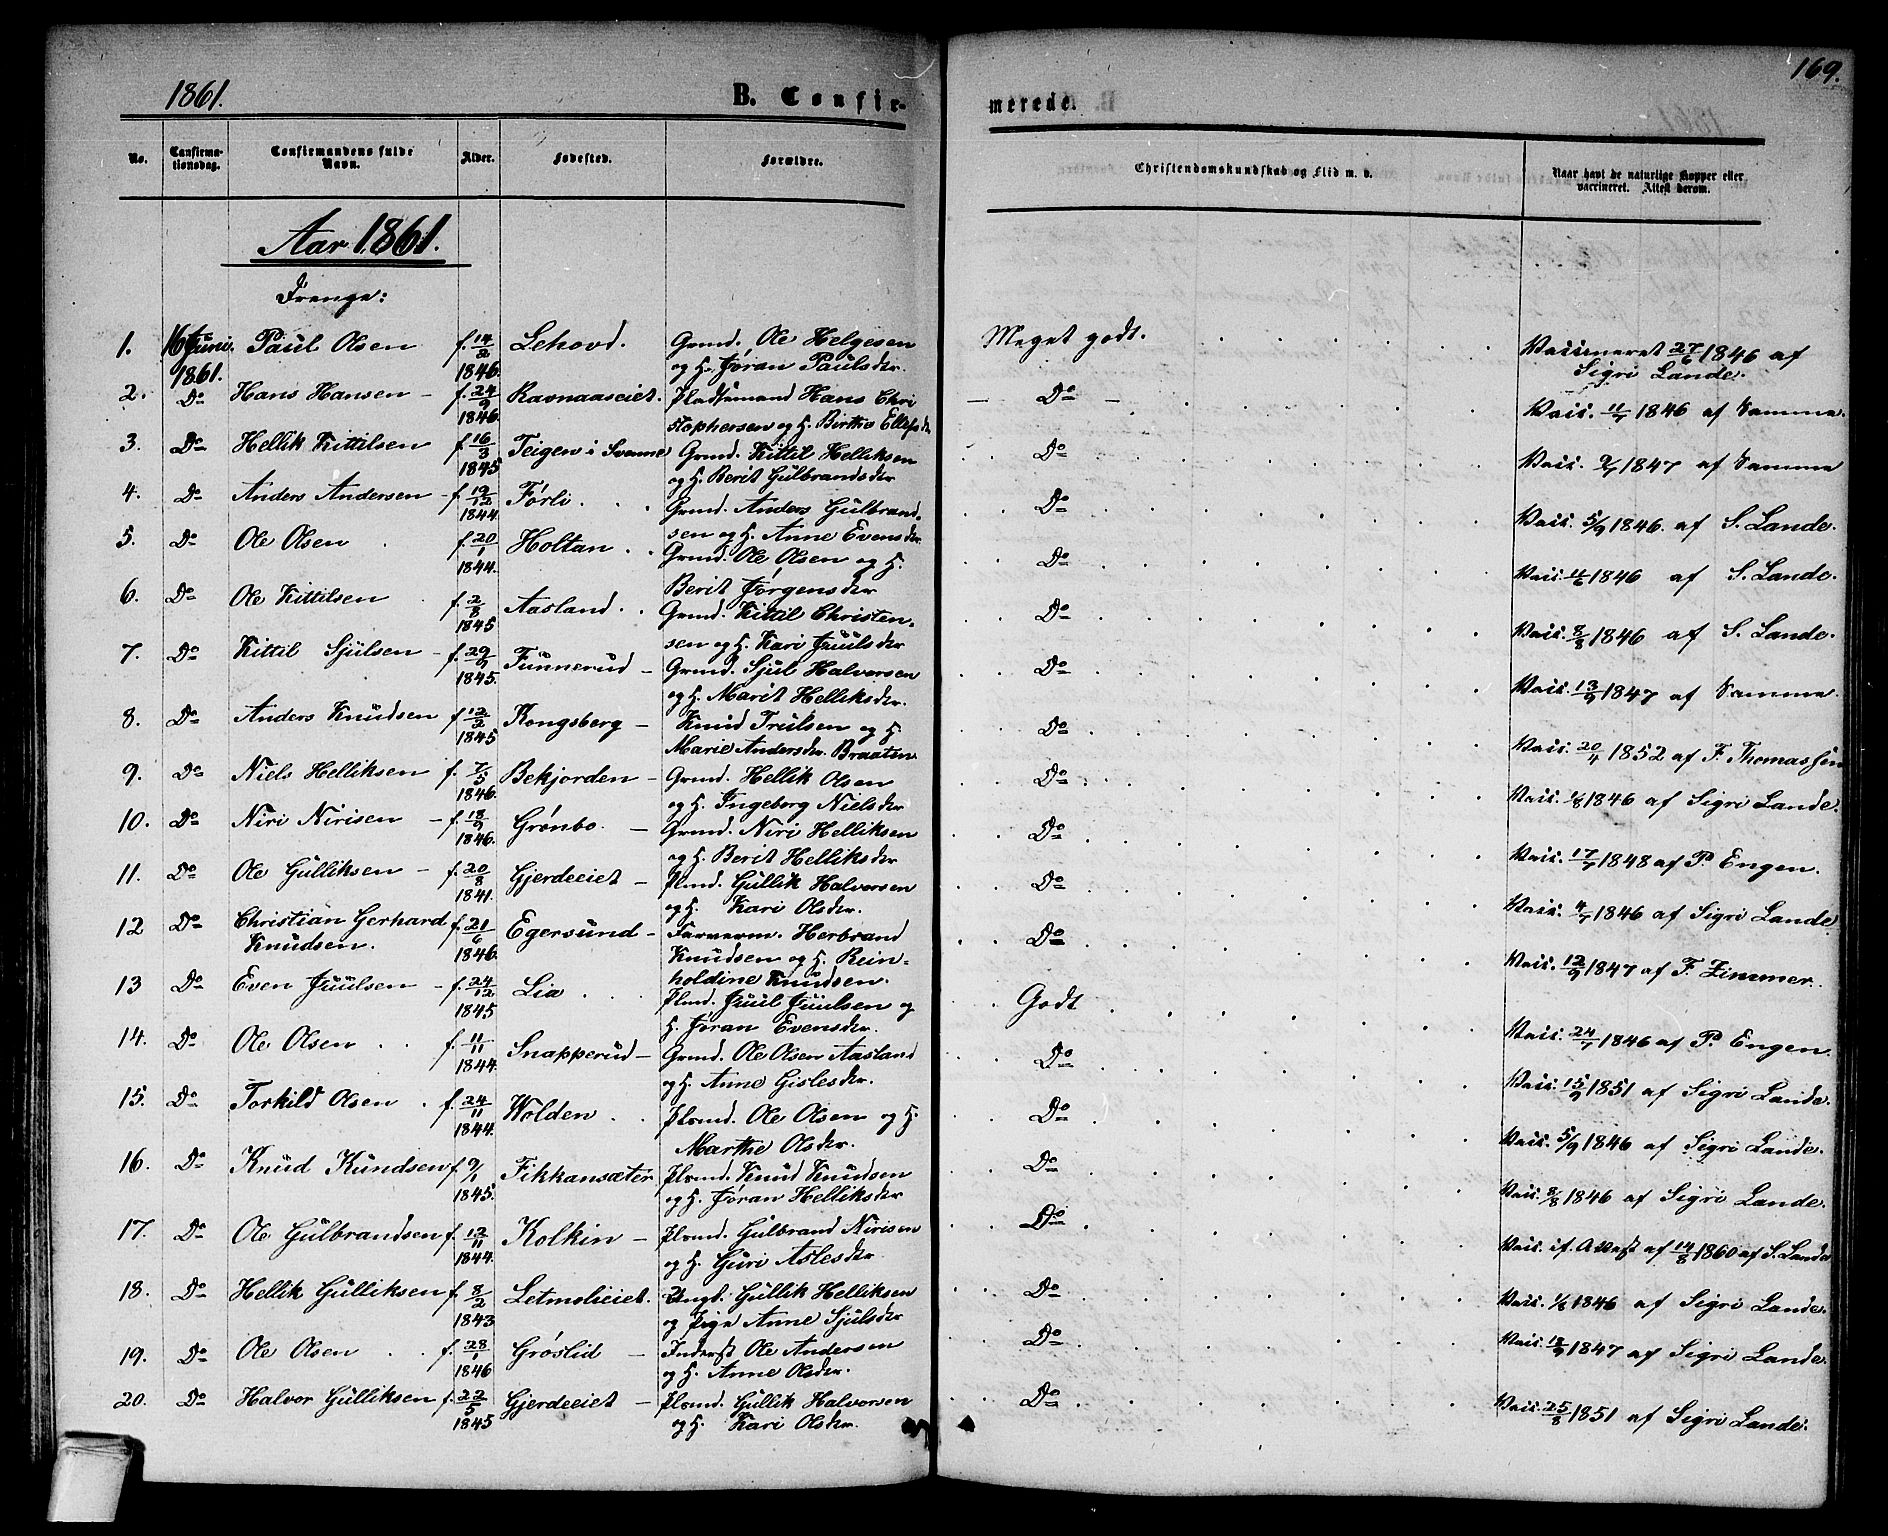 1861.
B. Confir-
merede.
169.
No.
Confirma-
tionsdag.
Confirmandens fulde
Navn.
Alder.
Fødested.
Forældre.
Christendomskundskab og Flid m. v.
Naar havt de naturlige Kopper eller
vaccineret. Attest derom.
Aar 1861.
Drenge:
1. 16 Juni 1861. Paul Olsen f. 14/2 1846. Lehovd. Grmd. Ole Helgesen
og H. Jøran Paulsdr. Meget godt. Vaccineret 27/6 1846 af
Sigri Lande.
2. Do Hans Hansen - f. 24/9 1846. Ravnaaseiet. Pladsemand Hans Chri
stophersen og H. Birthe Ellefsdr - Do - Vacc. 11/7 1846 af Samme.
3. Do Hellik Kittilsen f. 16/3 1845 Teigen i Svenne Grmd. Kittil Helliksen
og H. Berit Gulbrandsdr Do Vacc. 2/7 1847 af Samme
4. Do Anders Andersen - f. 19/12 1844. Førli. Grmd. Anders Gulbrand-
sen og H. Anne Evensdr. Do Vacc. 5/9 1846. af S. Lande.
5. Do Ole Olsen f. 20/1 1844. Holtan. Grmd. Ole Olsen og H.
Berit Jørgensdr Do Vacc. 11/6 1846 af S. Lande.
6. Do Ole Kittilsen f. 2/8 1845 Aasland. Grmd. Kittil Christen-
sen og H. Kari Juulsdr Do Vacc. 8/8 1846 af S. Lande.
7. Do Kittil Sjulsen - f. 29/9 1845. Funnerud - Grmd. Sjul Halvorsen
og H. Marit Helliksdr. Do Vacc. 13/9 1847 af Samme.
8. Do Anders Knudsen f. 12/2 1845 Kongsberg - Knud Trulsen og H.
Marie Andersdr. Braaten Do Vacc. 20/4 1852 af F. Thomassen
9. Do Niels Helliksen f. 7/5 1846. Bekjorden - Grmd. Hellik Olsen
og H. Ingeborg Nielsdr Do Vacc. 1/8 1846 af Sigri Lande.
10. Do Niri Nirisen - f. 18/9 1846. Grønbo. - Grmd. Niri Helliksen
og H. Berit Helliksdr Do Vacc. 17/7 1848 af P. Engen.
11. Do Ole Gulliksen - f. 20/8 1841. Gjerdeeiet - Plmd. Gullik Halvorsen
og H. Kari Olsdr. Do Vacc. 4/7 1846 af Sigri Lande.
12 Do Christian Gerhard
Knudsen. f. 21/6 1846. Egersund - Farverm. Herbrand
Knudsen og H. Rein-
holdine Knudsen. Do Vacc. 12/9 1847 af F. Zimmer.
13 Do Even Juulsen - f. 24/12 1845 Lia Plmd. Juul Juulsen og
H. Jøran Evensdr. Godt Vacc. 24/7 1846 af P. Engen.
14. Do Ole Olsen f. 11/11 1844. Snapperud - Grmd. Ole Olsen Aasland
og H. Anne Gislesdr. Do Vacc. 15/9 1851 af Sigri Lande.
15. Do Torkild Olsen f. 24/11 1844. Wolden Plmd. Ole Olsen og H.
Marthe Olsdr. Do Vacc. 5/9 1846 af Sigri Lande.
16. Do Knud Kundsen f. 9/1 1845. Fikkansæter. Plmd. Knud Knudsen
og H. Jøran Helliksdr Do Vacc. 8/8 1846 af Sigri Lande.
17. Do Ole Gulbrandsen f. 12/11 1844. Kolkin - Plmd. Gulbrand Nirisen
og H. Guri Aslesdr. Do Vacc. if. Attest af 14/8 1860 af S. Lande
18. Do Hellik Gulliksen f. 8/2 1843 Letmolieiet. Ungk. Gullik Helliksen
og Pige Anne Sjulsdr Do Vacc. 1/8 1846 af Sigri Lande.
19. Do Ole Olsen f. 28/1 1846 Grøslid - Inderst Ole Andersen
og H. Anne Olsdr. Do Vacc. 18/9 1847 af Sigri Lande.
20. Do Halvor Gulliksen f. 22/5 1845 Gjerdeeiet - Plmd. Gullik Halvorsen
og H. Kari Olsdr. Do Vacc. 25/8 1851 af Sigri Lande.